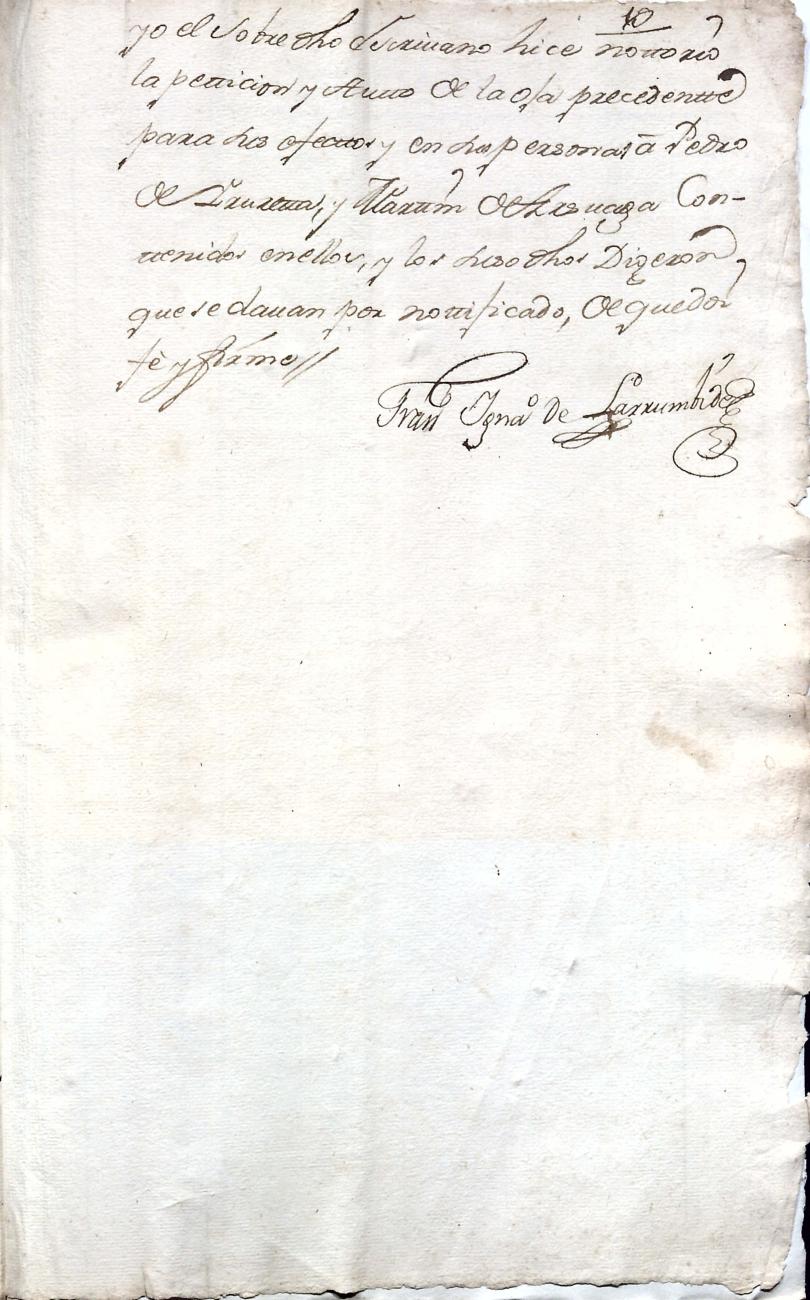 10
yo el sobre dho escriuano hice nottorio
la petticion y Autto de la oja precedentte
para sus efecttos y en sus personas â Pedro
de Yruretta, y Marttin de Aresuaga Con-
ttenidos en ellos, y los susodhos Digeron
que se dauan por nottificado, de que doi
fè y firme //
Fran.co Igna.o de Larrumbide